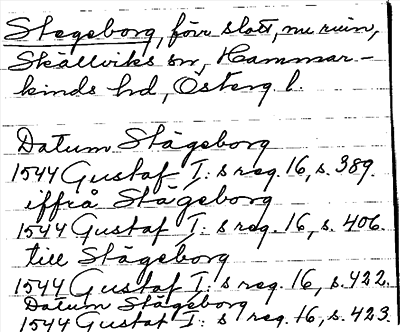 Stegeborg, förr slott, nu ruin,
Skällviks sn, Hammar-
kinds hd, Österg. l.
Datum Stägeborg
1544 Gustaf I: s reg. 16, s. 389.
iffrå Stägeborg
1544 Gustaf I: s reg. 16, s. 406.
till Stägeborg
1544 Gustaf I: s reg. 16, s. 422.
Datum Stägeborg
1544 Gustaf I: s reg. 16, s. 423.